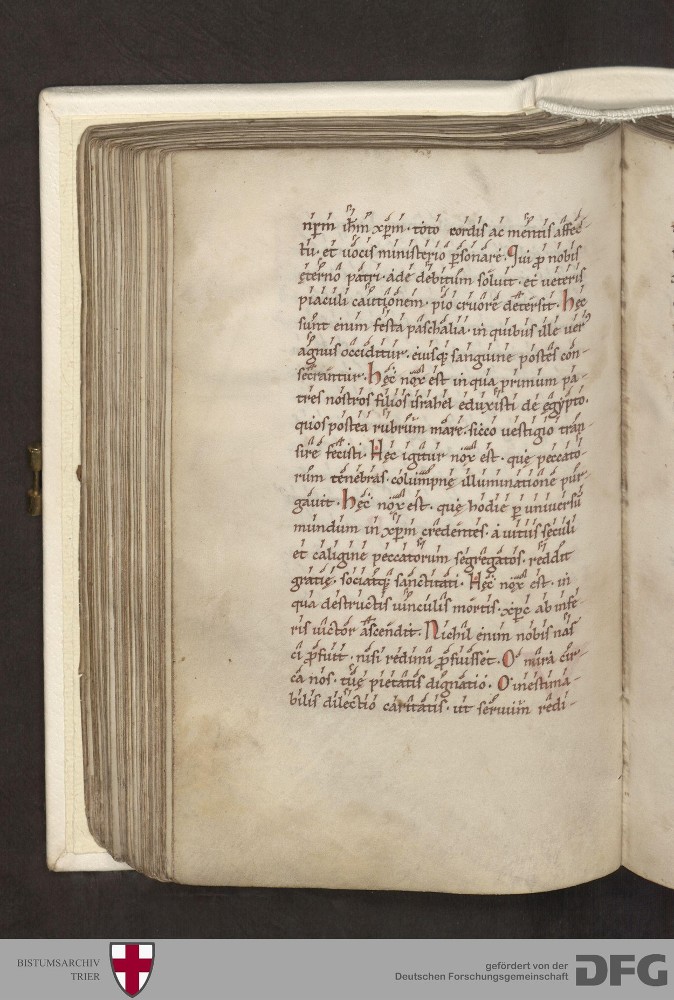 nr̄m ih̄m xp̄m · toto cordis ac mentis affec-
tu · et uocis ministerio p̱sonare. Qui p̱ nobis
ęterno patri · adę debitum soluit · et ueteris
piaculi cautionem · pio cruore detersit · Hęc
sunt enim festa paschalia · in quibus ille uer᷒
agnus occiditur · eiusq; sanguine postes con-
secrantur · Hęc nox est in qua primum pa-
tres nostros filios israhel eduxisti de ęgypto ·
quos postea rubrum mare · sicco uestigio tran-
sire fecisti · Hęc igitur nox est · quę peccato-
rum tenebras · columpnę illuminatione pur-
gauit · Hęc nox est · quę hodie p̱ uniuersū
mundum in xp̄m credentes · a uitiis sęculi
et caligine peccatorum segregatos · reddit
gratię · sociatq; sanctitati · Hęc nox est · in
qua destructis uinculis mortis · xp̄c ab infe-
ris uictor ascendit · Nichil enim nobis nas-
ci p̱fuit · nisi redimi p̱fuisset · O mira cir-
ca nos · tuę pietatis dignatio · O inestima-
bilis dilectio caritatis · ut seruum redi-
BISTUMSARCHIV
TRIER
gefördert von der
Deutschen Forschungsgemeinschaft
DFG